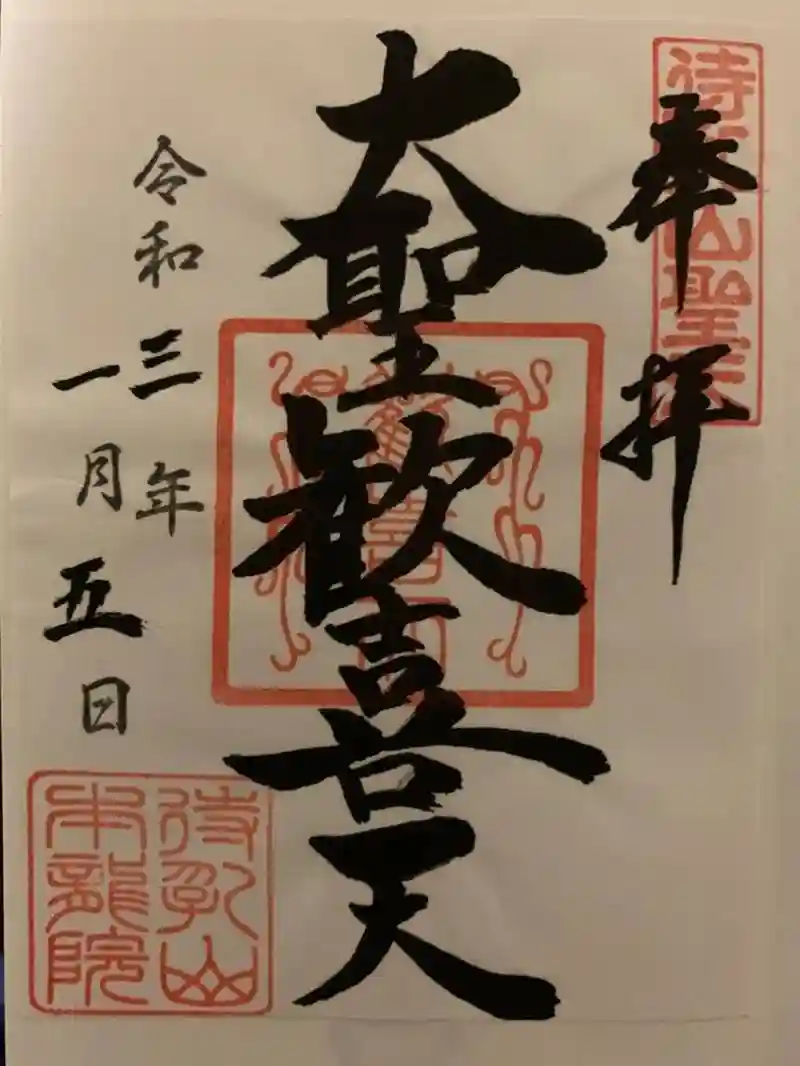 奉拝
待乳山聖天
大聖歓喜天
歓喜天
令和三年
一月五日
待乳山
本龍院